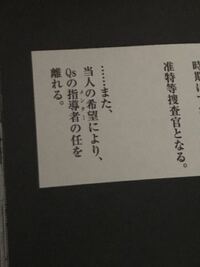 時期に
准特等捜査官となる。
……また、
当人の希望により、
Qsの指導者の任を
離れる。